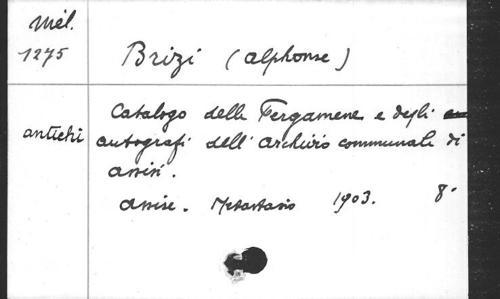 Mél.
1275
Brizi (Alphonse)
Catalogo delle Pergamene e degli
antichi autografi dell' archivio communale di
Assisi.
Assise. Metastasio 1903. 8°